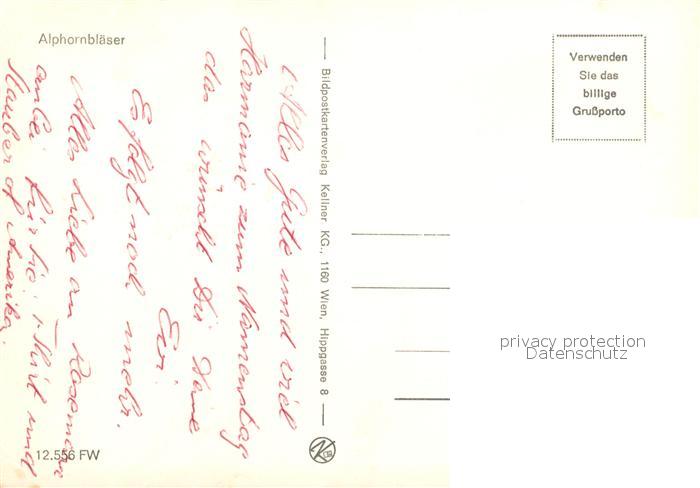 Alphornbläser
Verwenden
Sie das
billige
Grußporto
Bildpostkartenverlag Kellner KG., 1160 Wien, Hippgasse 8
Alles Gute und viel
Harmonie zum Namenstag
das wünscht Dir Deine
Evi
Es folgt noch mehr.
Alles Liebe an Rosemarie
anbei für sie 1 Shirt und
of Amerika.
privacy protection
Datenschutz
12.556 FW